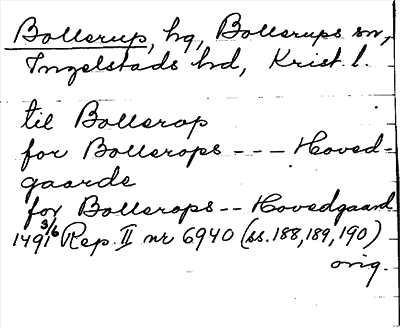 Bollerup, hg, Bollerups sn,
Ingelstads hd, Krist. l.
til Bollerop
for Bollerops --- Hoved-
gaarde
for Bollerops -- Hovedgaard
1491 3/6 Rep. II nr 6940 (ss. 188, 189, 190)
orig.